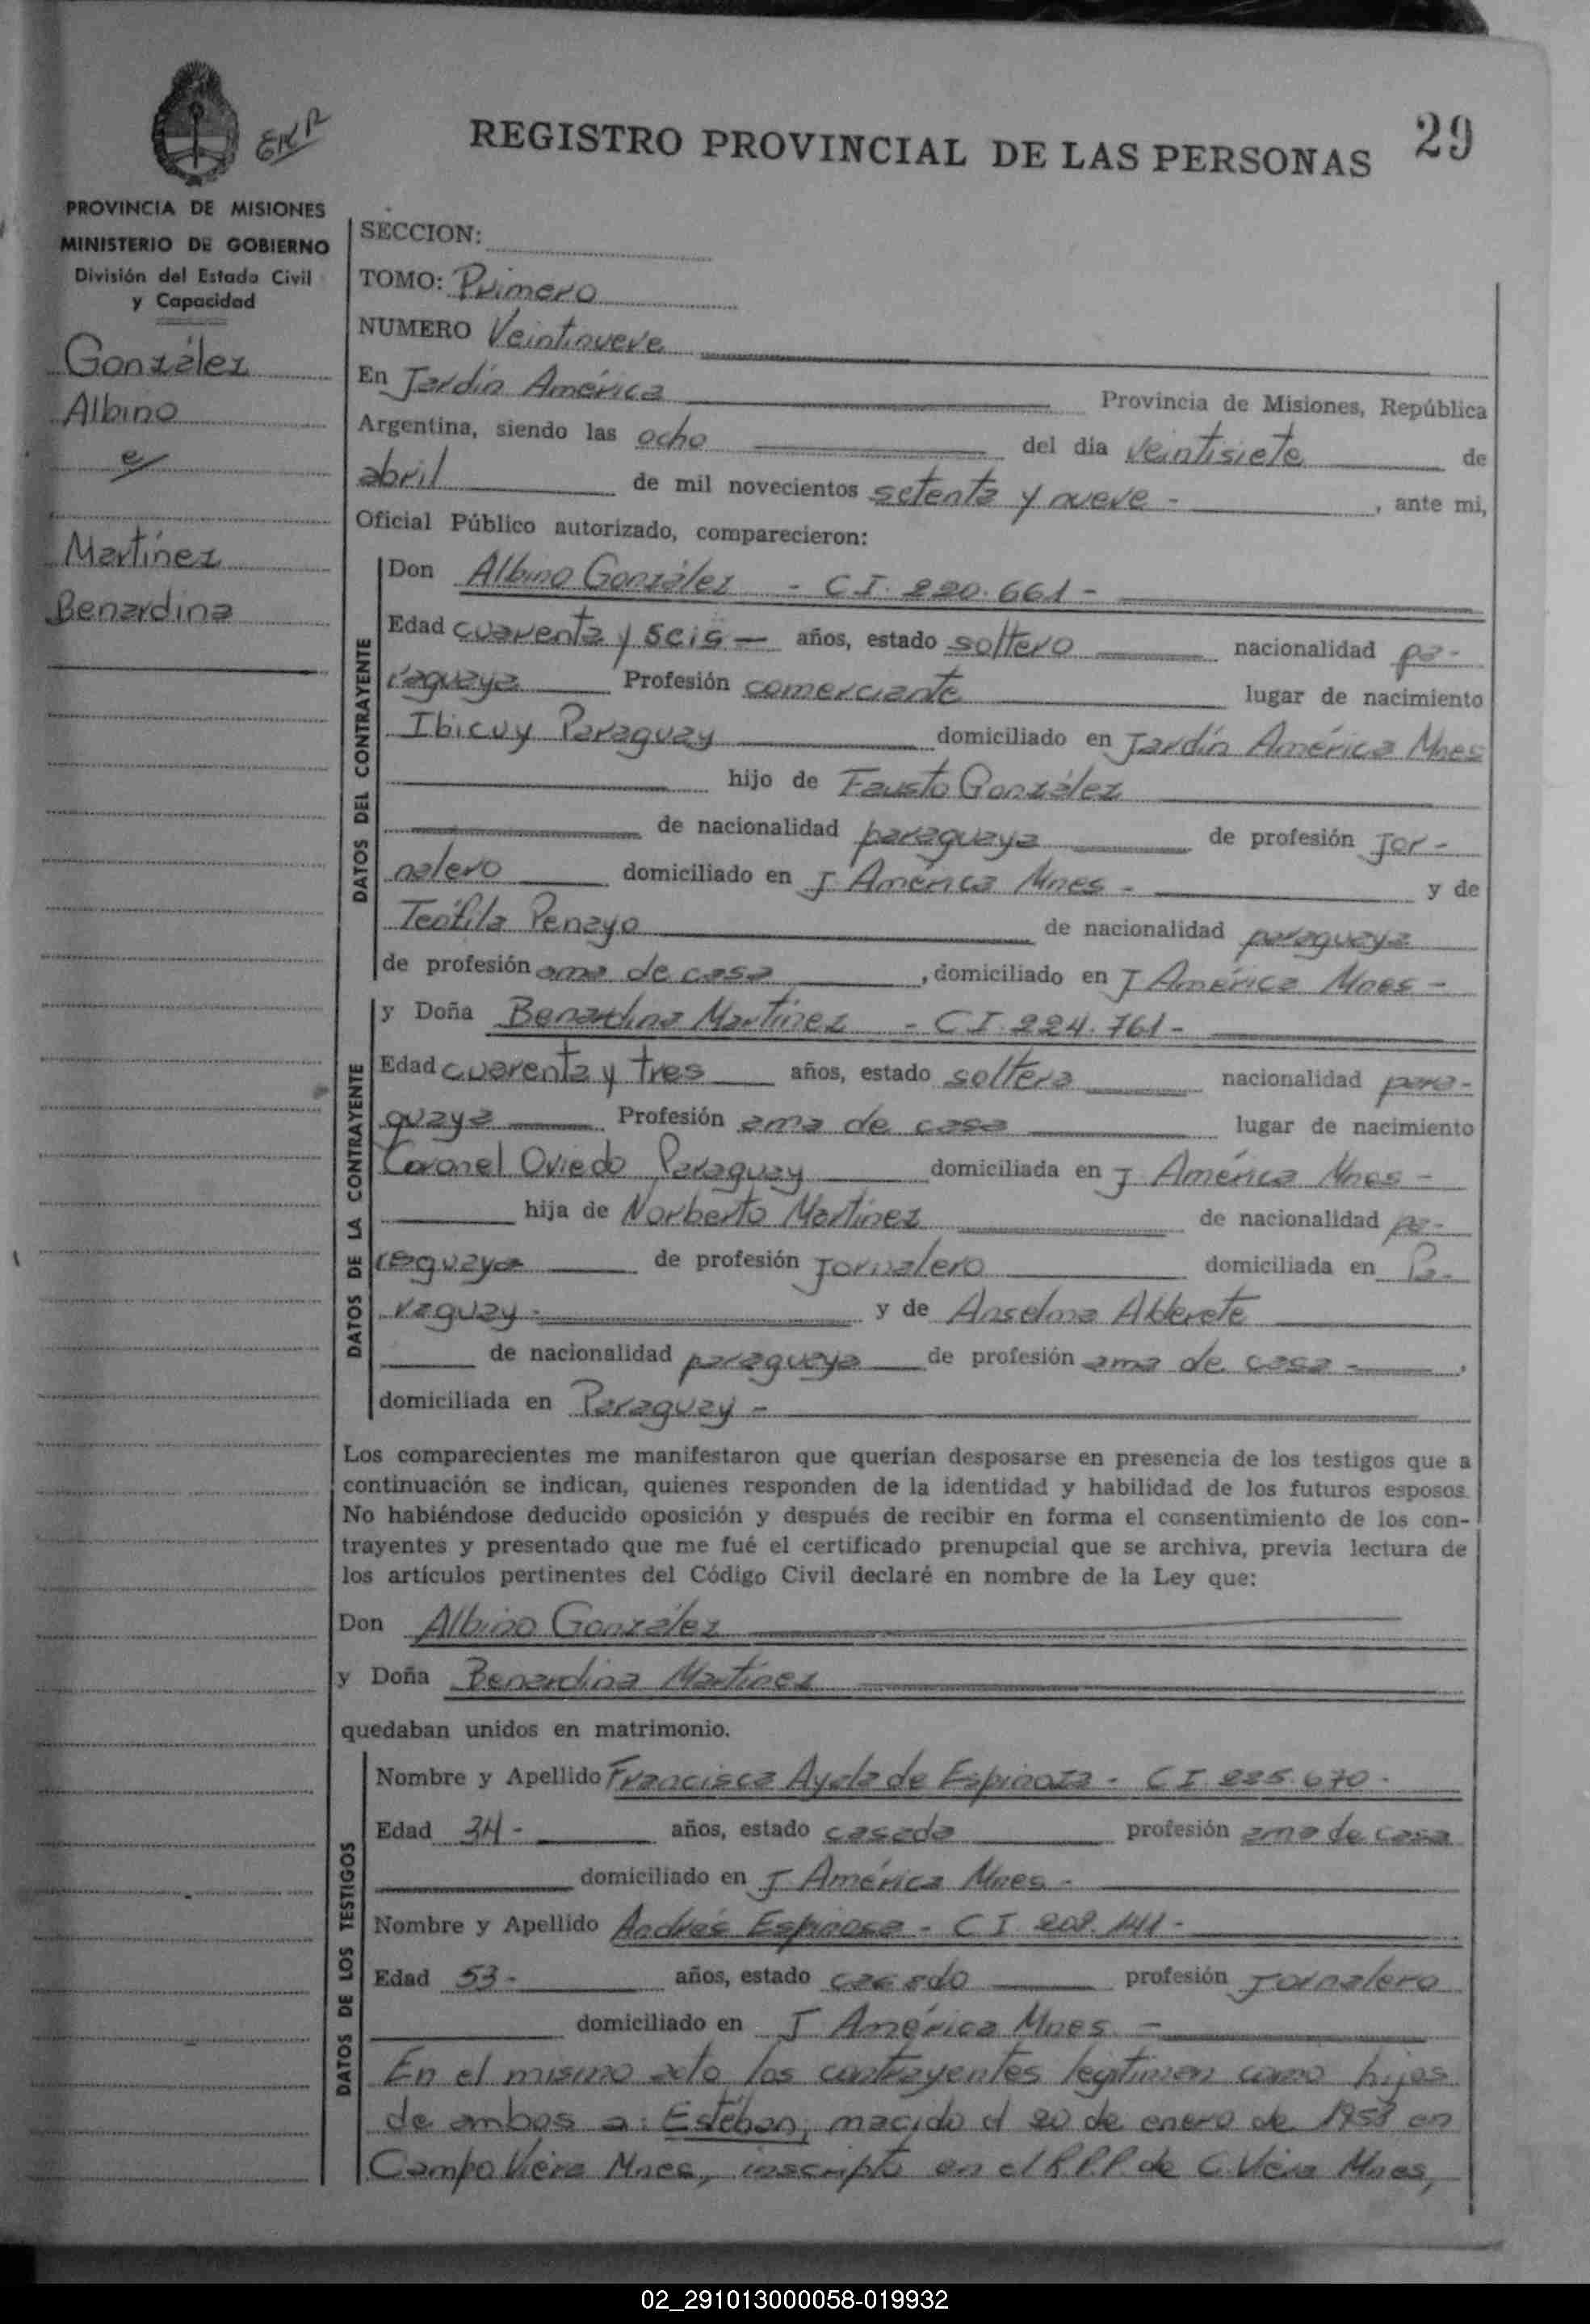 29
REGISTRO PROVINCIAL DE LAS PERSONAS
PROVINCIA DE MISIONES
MINISTERIO DE GOBIERNO
División del Estado Civil
y Capacidad
González
Albino
e/
Martínez
Benardina
SECCION:
TOMO: Primero
NUMERO Veintinueve
En Jardín América Provincia de Misiones, República
Argentina, siendo las ocho del día veintisiete de
abril de mil novecientos setenta y nueve - , ante mi,
Oficial Público autorizado, comparecieron:
DATOS DEL CONTRAYENTE
Don Albino González - C.I. 220.661 -
Edad cuarenta y seis — años, estado soltero nacionalidad pa-
raguaya Profesión comerciante lugar de nacimiento
Ibicuy Paraguay domiciliado en Jardín América Mnes
hijo de Fausto González
de nacionalidad paraguaya de profesión jor-
nalero domiciliado en J América Mnes - y de
Teófila Penayo de nacionalidad paraguaya
de profesión ama de casa , domiciliado en J América Mnes -
DATOS DE LA CONTRAYENTE
y Doña Benardina Martínez - C I. 224.761 -
Edad cuarenta y tres años, estado soltera nacionalidad para-
guaya Profesión ama de casa lugar de nacimiento
Coronel Oviedo Paraguay domiciliada en J América Mnes -
hija de Norberto Martínez de nacionalidad pa-
raguaya de profesión jornalero domiciliada en Pa-
raguay - y de Anselma
de nacionalidad paraguaya de profesión ama de casa - ,
domiciliada en Paraguay -
Los comparecientes me manifestaron que querían desposarse en presencia de los testigos que a
continuación se indican, quienes responden de la identidad y habilidad de los futuros esposos.
No habiéndose deducido oposición y después de recibir en forma el consentimiento de los con-
trayentes y presentado que me fué el certificado prenupcial que se archiva, previa lectura de
los artículos pertinentes del Código Civil declaré en nombre de la Ley que:
Don Albino González
y Doña Benardina Martínez
quedaban unidos en matrimonio.
DATOS DE LOS TESTIGOS
Nombre y Apellido Francisca Ayala de Espinoza - C I. 225.670 -
Edad 34 - años, estado casada profesión ama de casa
domiciliado en J América Mnes -
Nombre y Apellido Andrés Espinosa - C I 208.141 -
Edad 53 - años, estado casado profesión jornalero
domiciliado en J América Mnes -
En el mismo acto los contrayentes legitiman como hijos
de ambos a: Estéban, nacido el 20 de enero de 1958 en
Campo Viera Mnes, inscripto en el R.P.P. de C. Viera Mnes,
02_291013000058-019932